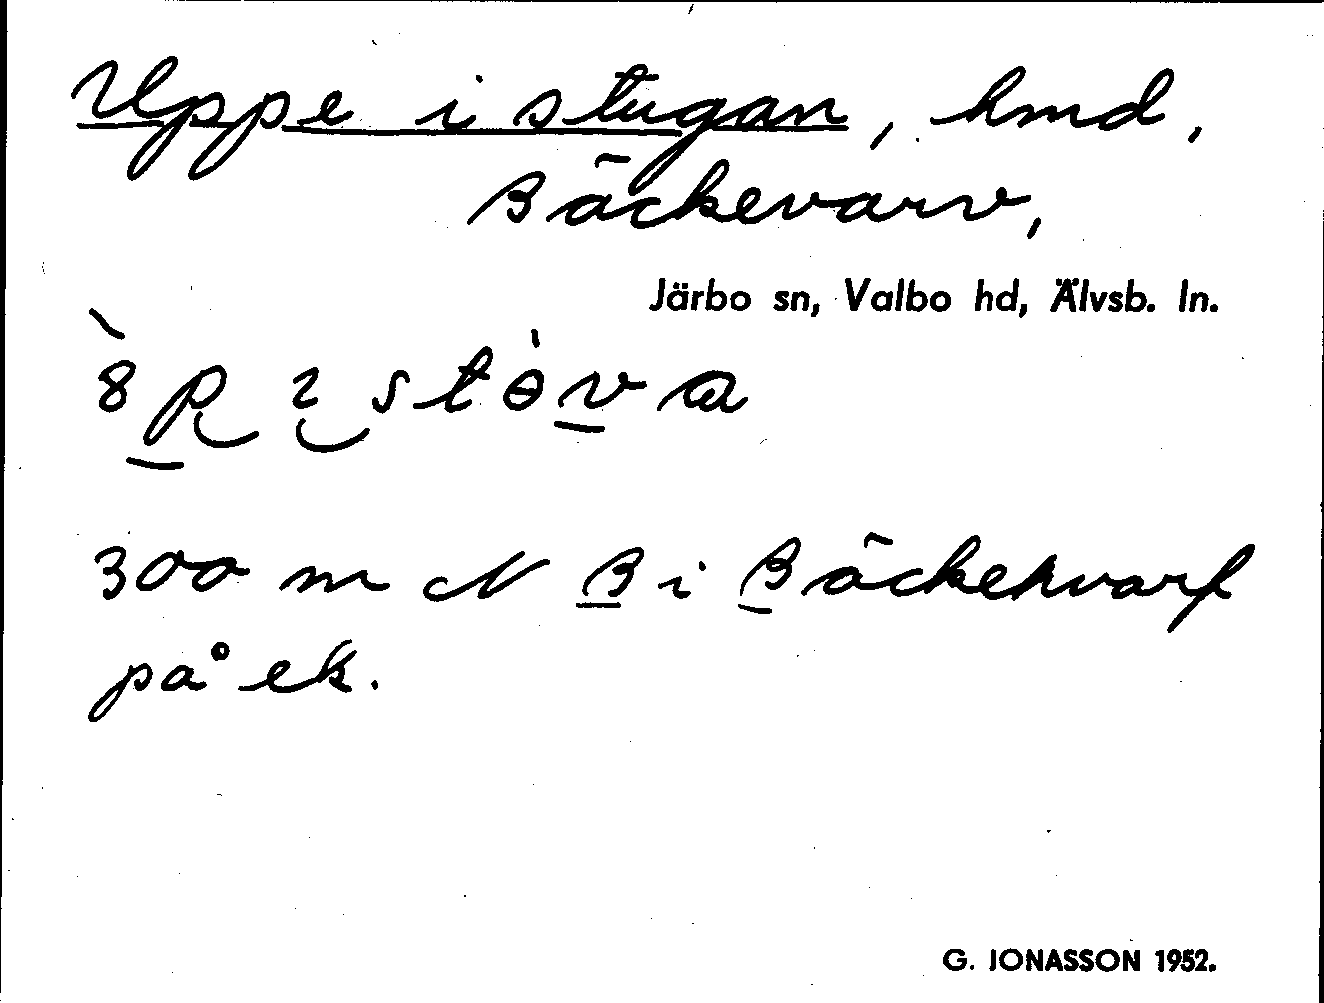 Uppe i stugan, hmd,
Bäckevarv,
Järbo sn, Valbo hd, Älvsb. ln.
300 m N B i Bäckehvarf
på ek.
G. JONASSON 1952.